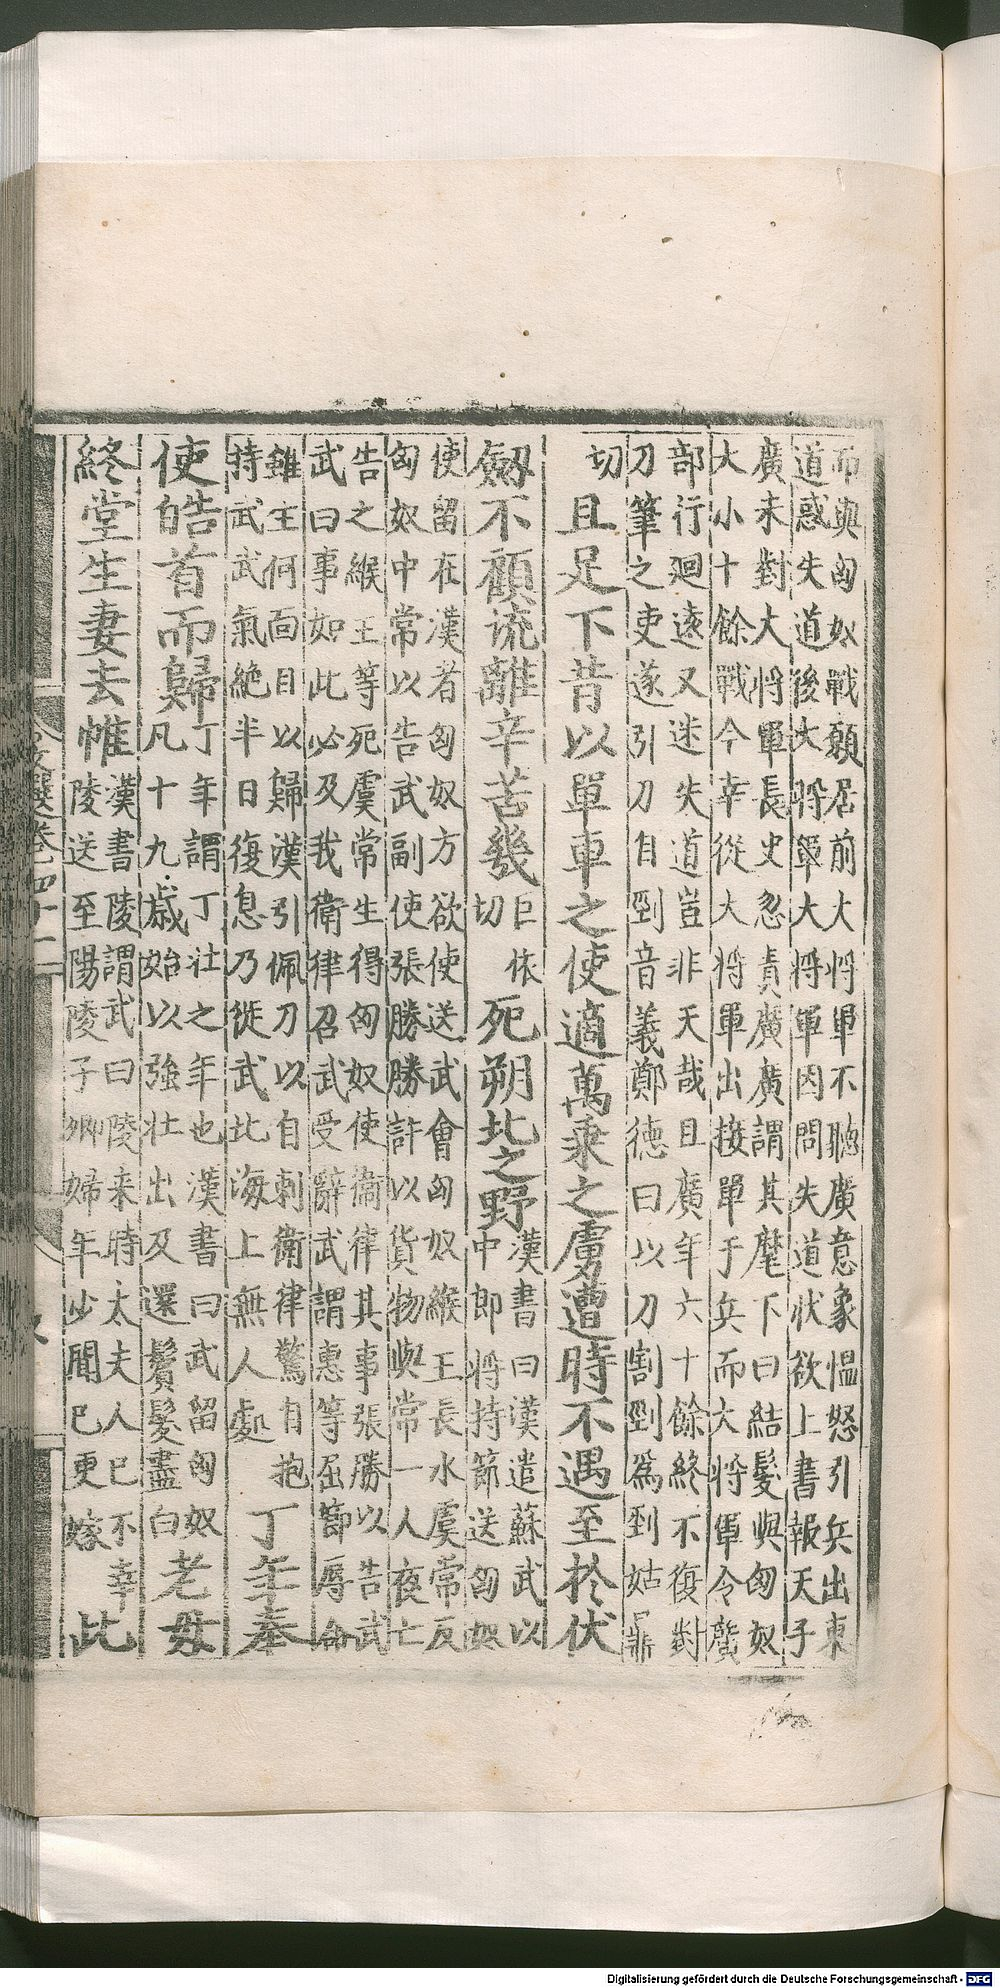 而與匈奴戰願居前大將軍不聽廣意象慍怒引兵出東
道惑失道後大將軍大將軍因問失道狀欲上書報天子
廣未對大將軍長史忽責廣廣謂其麾下曰結髮與匈奴
大小十餘戰今幸從大將軍出接單于兵而大將軍令廣
部行迴遠又迷失道豈非天哉且廣年六十餘終不復對
刀筆之吏遂引刀自剄音義鄭德曰以刀割剄為剄姑鼎
切
且足下昔以單車之使適萬乘之虜遭時不遇至於伏
劒不顧流離辛苦幾巨依
切
死朔北之野漢書曰漢遣蘇武以
中郎將持節送匈奴
使留在漢者匈奴方欲使送武會匈奴緱王長水虞常反
匈奴中常以告武副使張勝勝許以貨物與常一人夜亡
告之緱王等死虞常生得匈奴使衞律其事張勝以告武
武曰事如此必及我衞律召武受辭武謂惠等屈節辱命
雖生何面目以歸漢引佩刀以自刺衞律驚自抱
持武武氣絶半日復息乃徙武北海上無人處
丁年奉
使皓首而歸丁年謂丁壯之年也漢書曰武留匈奴
凡十九歲始以強壯出及還鬢髮盡白
老母
終堂生妻去帷漢書陵謂武曰陵来時太夫人已不幸
陵送至陽陵子卿婦年少聞已更嫁
此
文選卷四十一